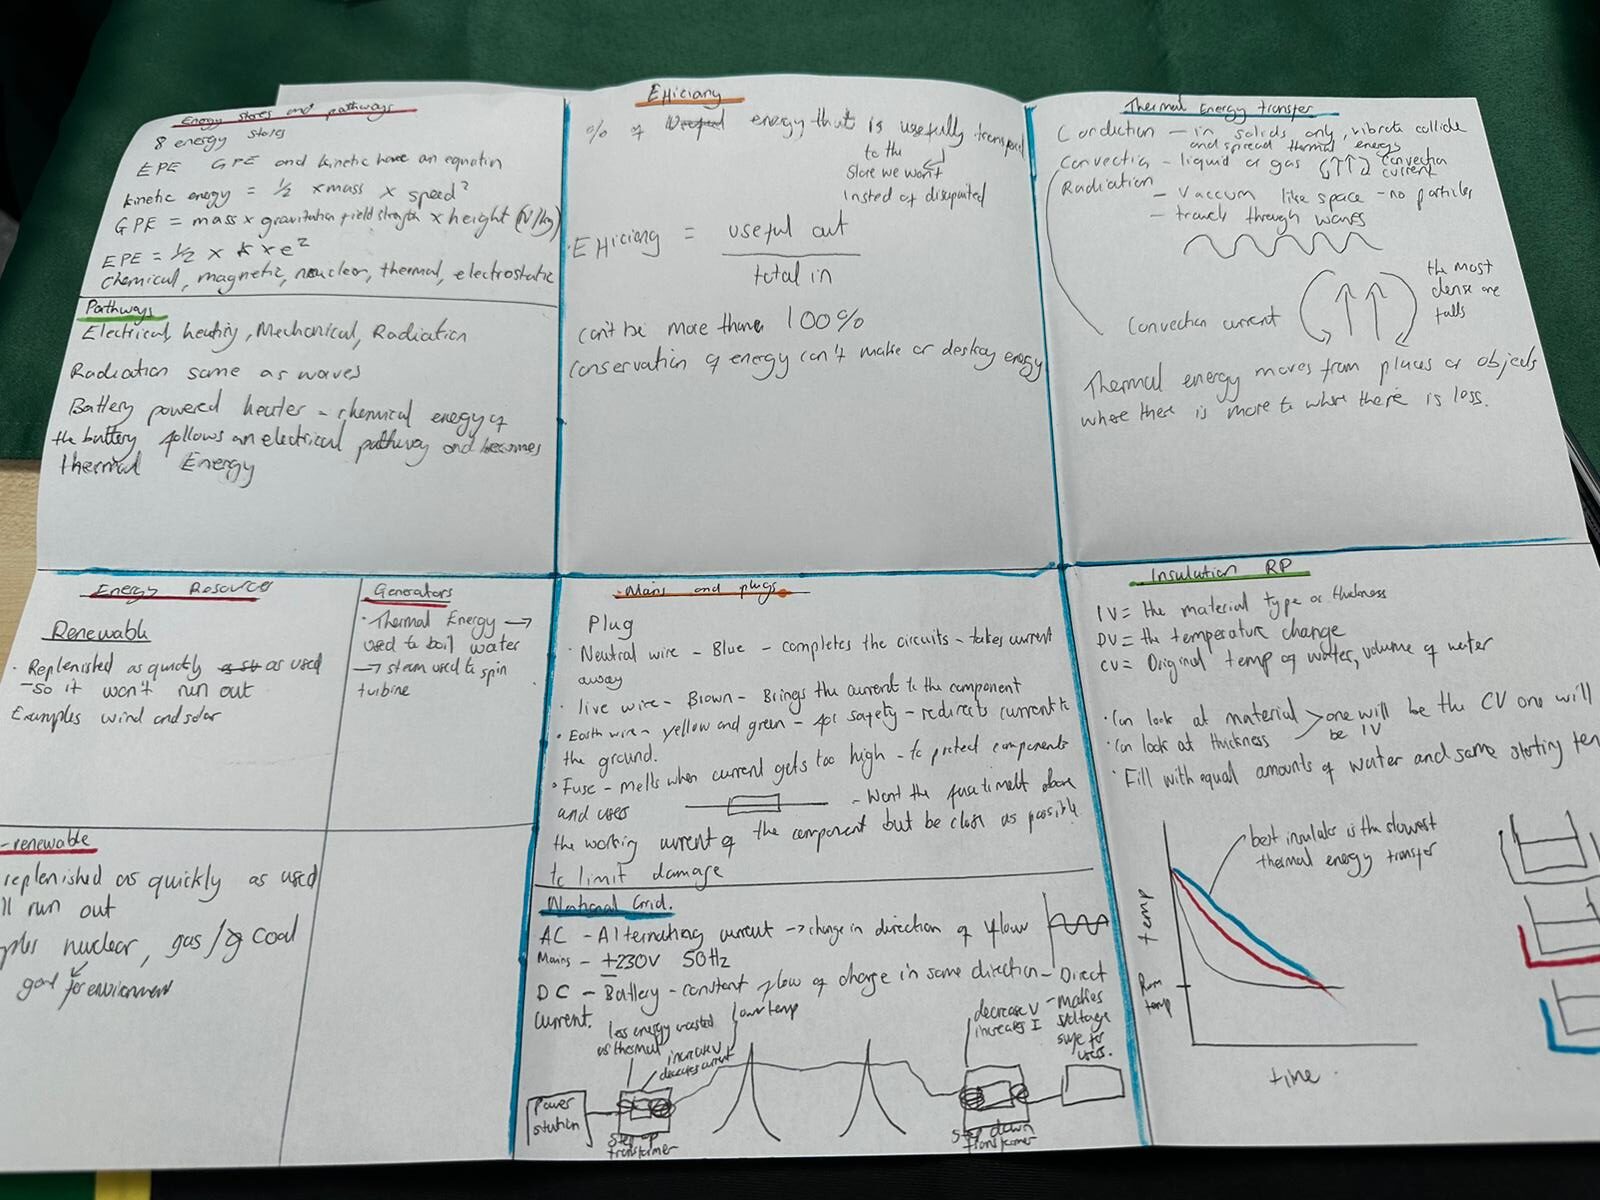 Energy stores and pathways
8 energy stores
EPE GPE and kinetic have an equation
kinetic energy = 1/2 x mass x speed²
GPE = mass x gravitation field strength x height (N/kg)
EPE = 1/2 x k x e²
chemical, magnetic, nuclear, thermal, electrostatic
Pathways
Electrical, heating, Mechanical, Radiation
Radiation same as waves
Battery powered heater - chemical energy of
the battery follows an electrical pathway and becomes
thermal Energy
Efficiany
% of energy that is usefully transpered
to the
store we want
insted of dissipated
Efficiany = useful out
total in
can't be more than 100%
conservation of energy can't make or destroy energy
Thermal Energy transfer
Conduction - in solids only, vibrate collide
and spread thermal energy
Convection - liquid or gas convection
current
Radiation
- Vaccum like space - no particles
- travels through waves
the most
dense one
falls
Convection current
Thermal energy moves from places or objects
where there is more to where there is less.
Energy Resource
Renewable
· Replenished as quickly as used
- so it won't run out
Examples wind and solar
Generators
· Thermal Energy →
used to boil water
→ steam used to spin
turbine
-renewable
replenished as quickly as used
ll run out
ples nuclear, gas/ coal
good for environment
Mains and plugs
Plug
· Neutral wire - Blue - completes the circuits - takes current
away
· live wire - Brown - Brings the current to the component
· Earth wire - yellow and green - for safety - redirects current to
the ground.
· Fuse - melts when current gets too high - to protect components
and users - Want the fuse to melt above
the working current of the component but be close as possible
to limit damage
National Grid.
AC - Alternating current → change in direction of flow
Mains - ±230V 50Hz
DC - Battery - constant flow of charge in same direction - Direct
current.
less energy wasted
as thermal
increase V
decreases current
lower temp
decrease V
increases I
- makes
voltage
safe for
users.
Power
station
Step up
transformer
Step down
transformer
Insulation RP
IV = the material type or thickness
DV = the temperature change
CV = Original temp of water, volume of water
· Can look at material > one will be the CV one will
· Can look at thickness be IV
· Fill with equal amounts of water and same starting tem
best insulator is the slowest
thermal energy transfer
temp
Room
temp
time